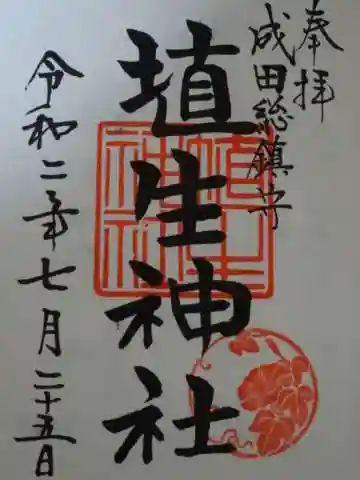 奉拝
成田総鎮守
埴生神社
埴生神社
令和二年七月二十五日